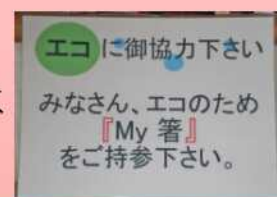 エコに御協力下さい
みなさん、エコのため
『My 箸』
をご持参下さい。